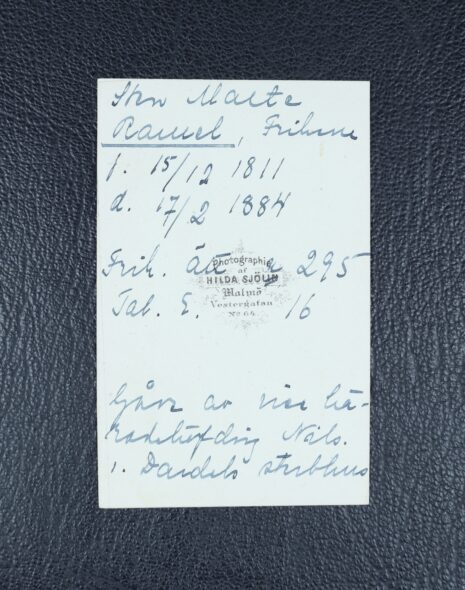 Sten Malte
Ramel, Friherre
f. 15/12 1811
d. 17/2 1884
Frih. ätt 295
Photographie
af
HILDA SJÖLIN
Malmö
Vestergatan
No 64.
Tab. E. 16
Gåva av vice hä-
radshövding Nils
v. Dardels sterbhus